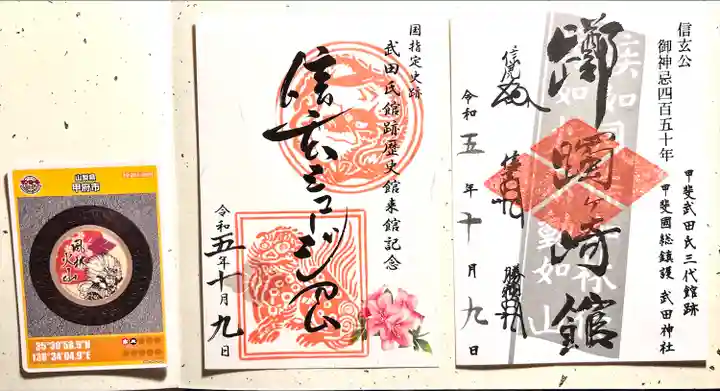 信玄公
御神忌四百五十年
甲斐武田氏三代館跡
甲斐國総鎮護 武田神社
躑躅ヶ崎館
信虎
信玄
勝頼
令和五年十月九日
国指定史跡
武田氏館跡歴史館来館記念
信玄ミュージアム
令和五年十月九日
山梨県
甲府市
風林火山
35°39'58.9"N
138°34'04.9"E